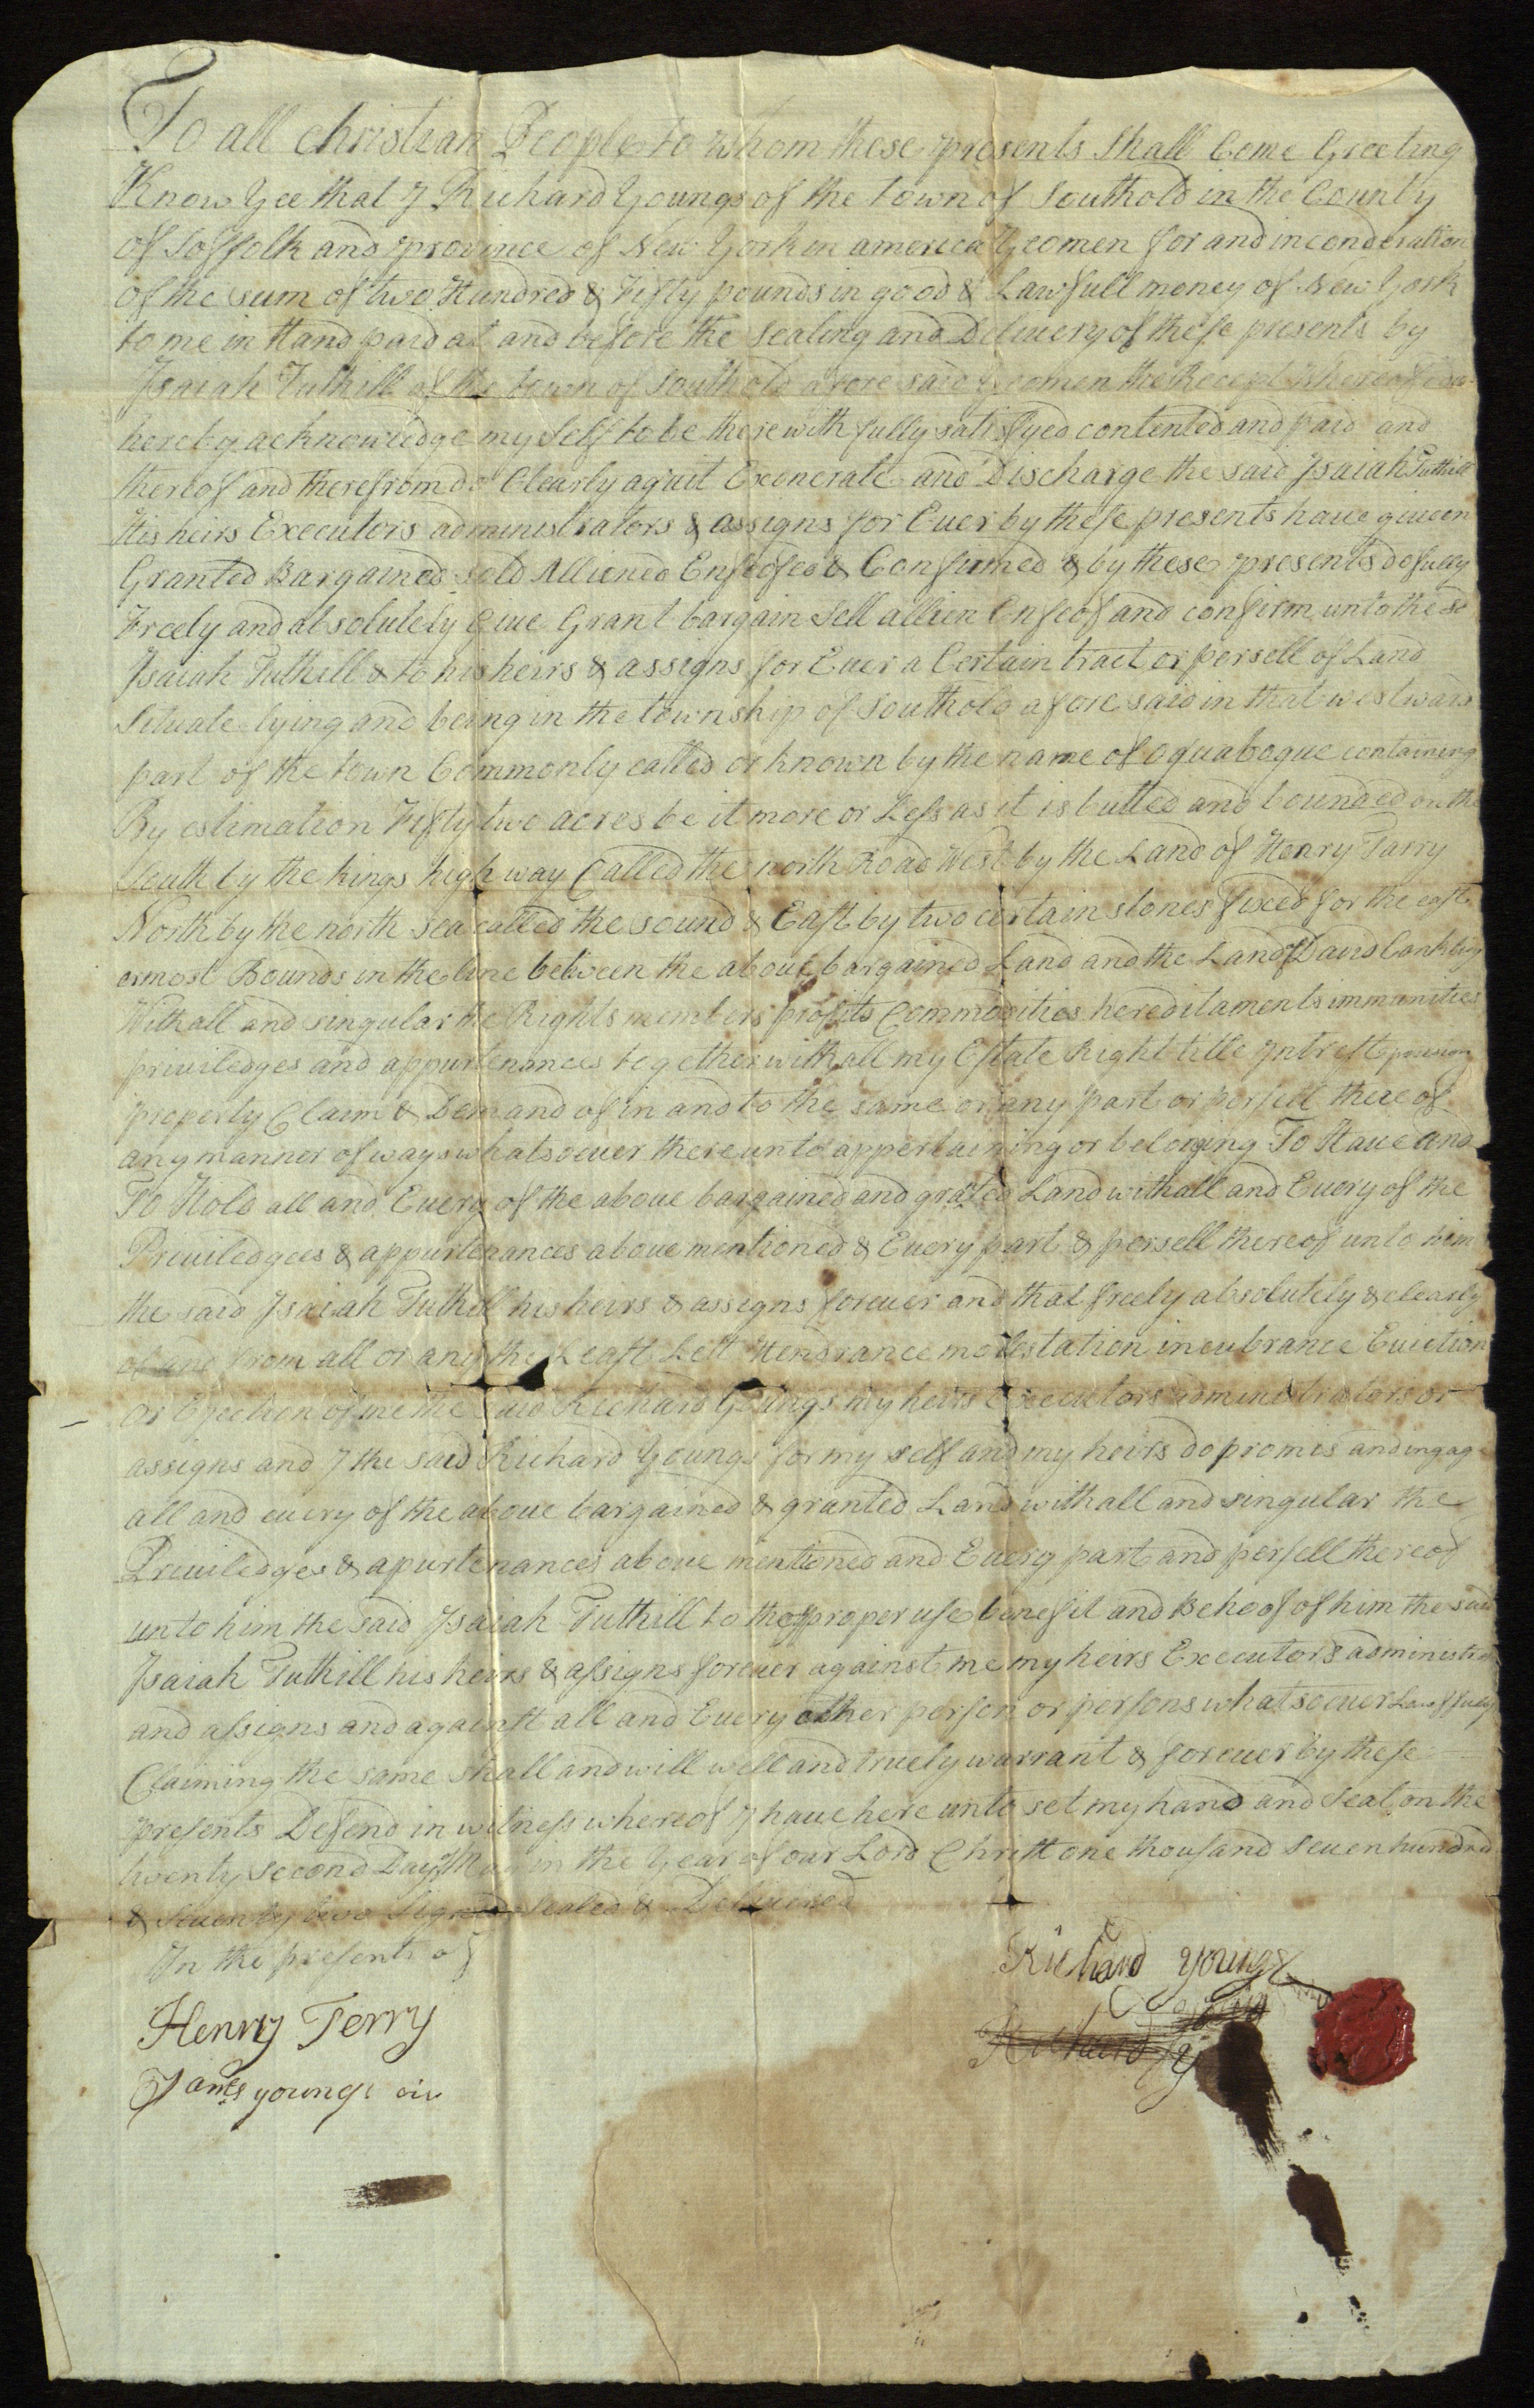 To all christian People to whom these presents Shall Come Greeting
Know Yee that I Richard Youngs of the town of Southold in the County
of Soffolk and province of New York in america Yeomen for and in conderation
of the sum of two Hundred & Fifty pounds in good & Lawfull money of New York
to me in Hand paid at and before the Sealing and Delivery of these presents by
Isaiah Tuthill of the town of Southold afore said Yeomen the Recept whereof I do
hereby acknowledge my Self to be therewith fully satisfyed contented and paid and
thereof and therefrom do Clearly aquit Exonerate and Discharge the said Isaiah Tuthill
His heirs Executors administrators & assigns for Ever by these presents have giveen
Granted Bargained sold Alliened Enfeofed & Confirmed & by these presents do fully
Freely and absolutely Give Grant bargain Sell allien Enfeof and confirm unto the sd
Isaiah Tuthill & to his heirs & assigns for Ever a Certain tract or persell of Land
Situate lying and being in the township of Southold afore said in that westward
part of the town Commonly called or known by the name of oquaboque containing
By estimation Fifty two acres be it more or Less as it is butted and bounded on the
South by the kings high way Called the north Road West by the Land of Henry Tarry
North by the north sea called the sound & East by two certain stones fixed for the east
ermost Bounds in the line between the above bargained Land and the Land of David Conkling
With all and singular the Rights members profits Commodities hereditaments immunities
priviledges and appurtenances together with all my Estate Right title Intrest possesion
property Claim & Demand of in and to the same or any part or persell there of
any manner of ways whatsoever there unto appertaining or beloging To Have and
To Hold all and Every of the above bargained and grated Land with all and Every of the
Priviledgees & appurtenances above mentioned & Every part & persell thereof unto him
the said Isaiah Tuthill his heirs & assigns forever and that freely absolutely & clearly
of and from all or any the Least Lett Hendrance molestation incubrance Eviction
or Ejection of me the said Richard Youngs my heirs Executors administrators or
assigns and I the said Richard Youngs for my self and my heirs do promis and ingag
all and every of the above bargained & granted Land with all and singular the
Priviledges & apurtenances above mentioned and Every part and persell thereof
unto him the said Isaiah Tuthill to the proper use benefit and Behoof of him the said
Isaiah Tuthill his heirs & assigns forever against me my heirs Executors administra
and assigns and againtt all and Every other person or persons whatsoever Lawffully
Claiming the same shall and will well and truely warrant & forever by these
presents Defend in witness whereof I have here unto set my hand and Seal on the
twenty second Day of May in the Year of our Lord Christt one thousand seven hundred
& Seventy two Signed Sealed & Delivered
In the presents of
Richard youngs
Henry Terry
Richard y
James youngs